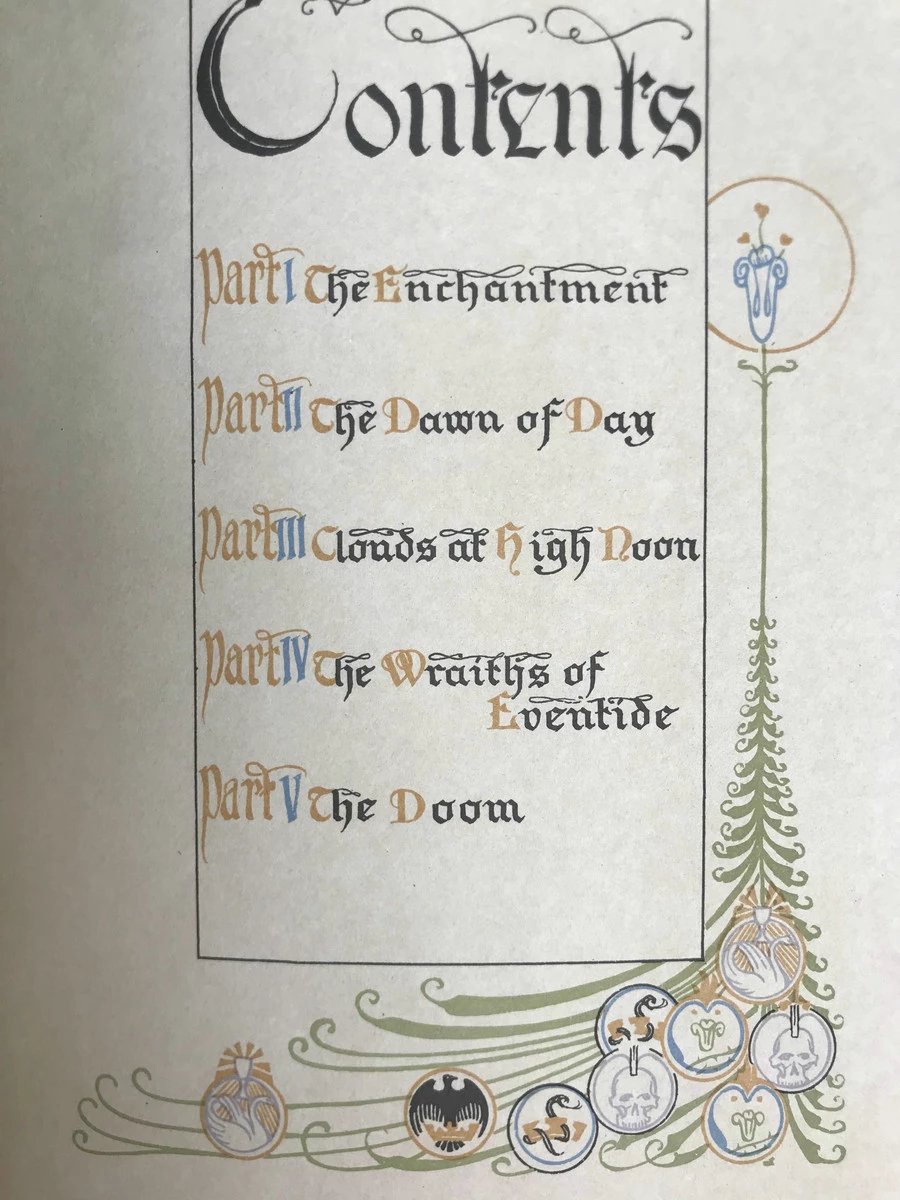 Contents
Part I The Enchantment
Part II The Dawn of Day
Part III Clouds at High Noon
Part IV The Wraiths of
Eventide
Part V The Doom